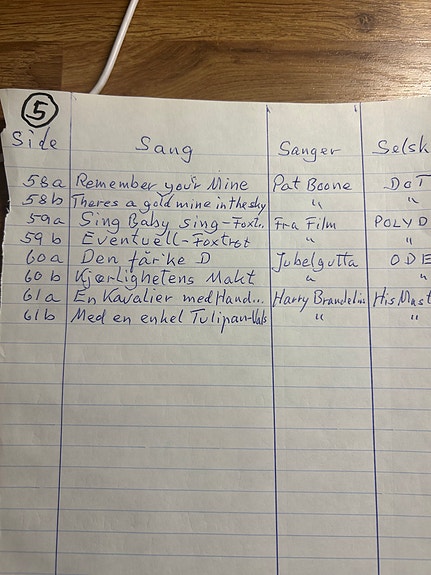 5
Side Sang Sanger Selsk
58a Remember your Mine Pat Boone DOT
58b Theres a gold mine in the sky "
59a Sing Baby sing-Foxt.. Fra Film POLYD
59b Eventuell-Foxtrot "
60a Den färike D Jubelgutta ODE
60b Kjærlighetens Makt " "
61a En Kavalier med Hand... Harry Brandelius His Mast
61b Med en enkel Tulipan-Vals " "